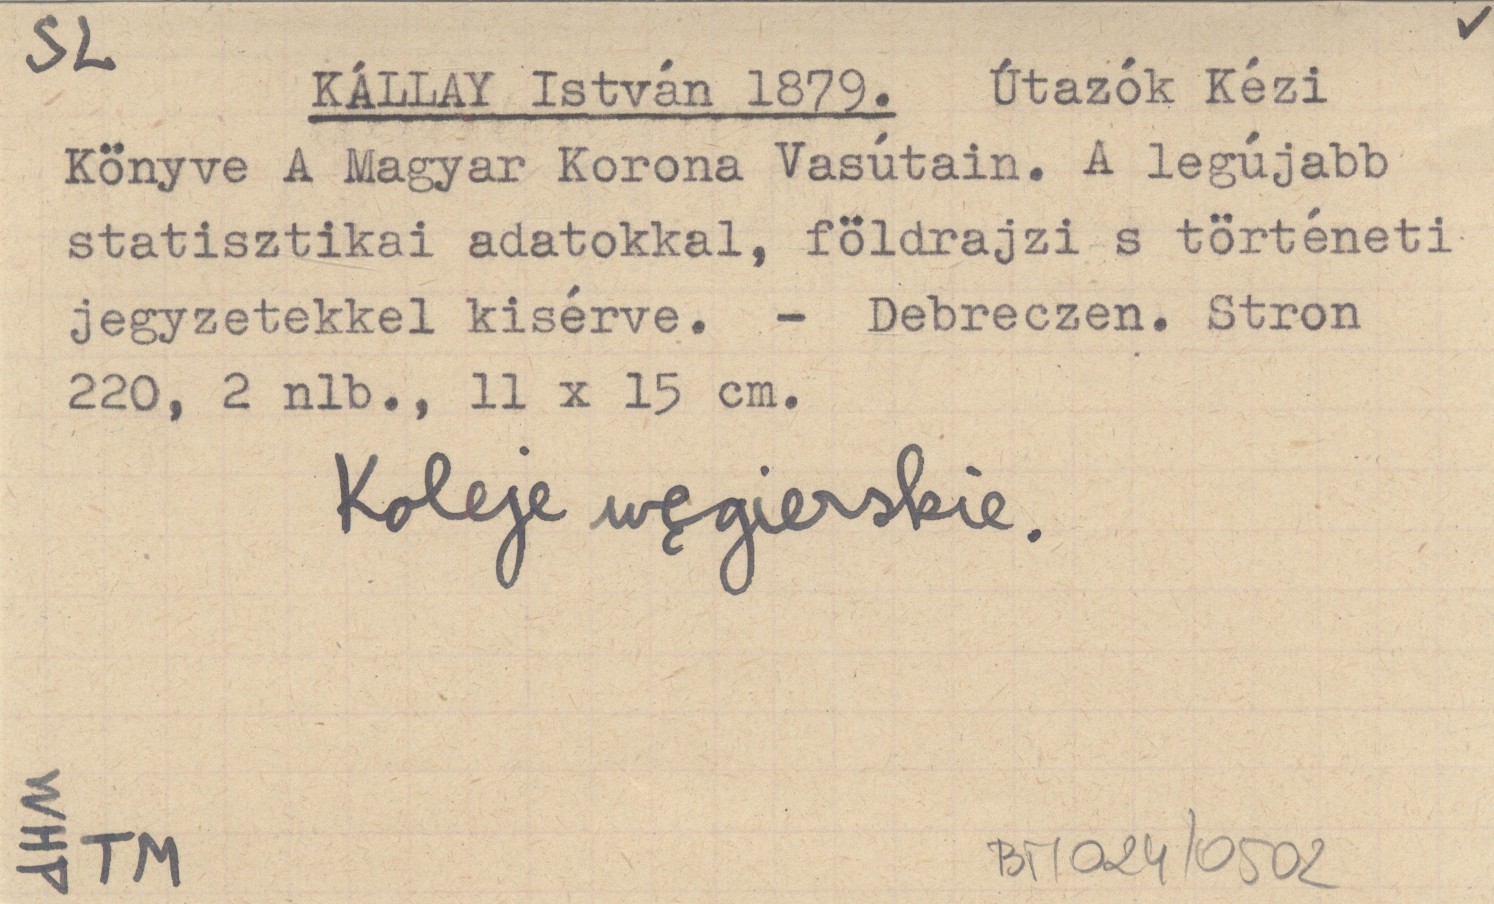 SL ✓
KÁLLAY István 1879. Útazók Kézi
Könyve A Magyar Korona Vasútain. A legújabb
statisztikai adatokkal, földrajzi s történeti
jegyzetekkel kisérve. - Debreczen. Stron
220, 2 nlb., 11 x 15 cm.
Koleje węgierskie.
WHP
TM
BT/024/0502